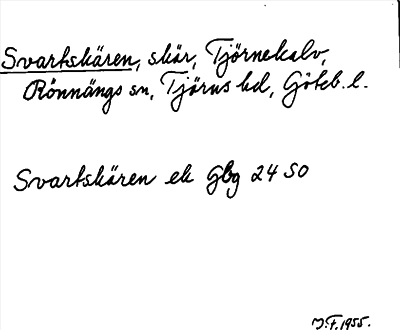 Svartskären, skär, Tjörnekalv,
Rönnängs sn, Tjörns hd, Göteb. l.
Svartskären ek Gbg 24 SO
J.F. 1955.